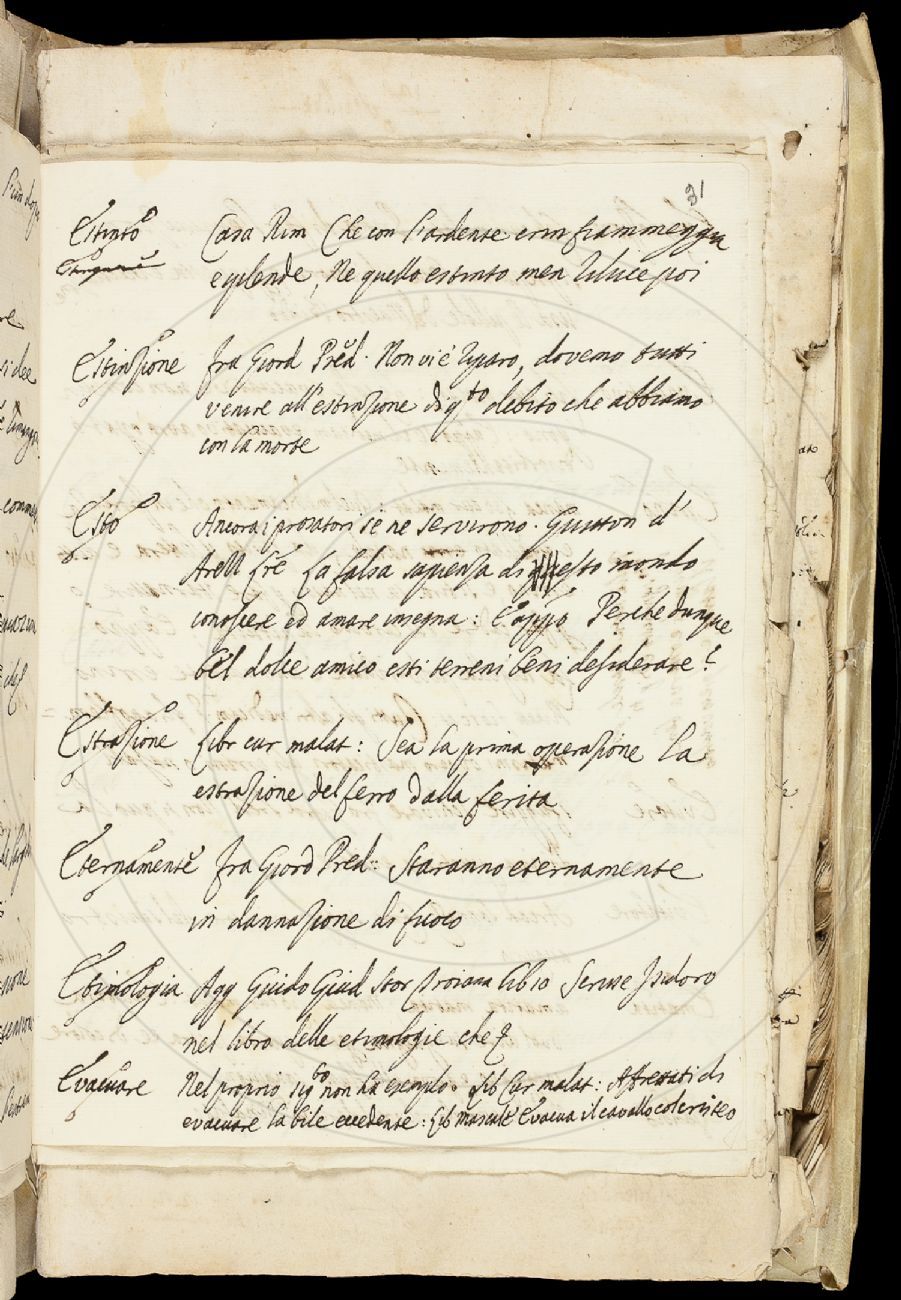 31
Estinto Casa Rim Che con l'ardente crin fiammeggia
e splende, Ne quello estinto men riluce poi
Estinzione fra Giord Pred. Non vi è riparo, dovemo tutti
venire all'estinzione di q.to debito che abbiamo
con la morte
Esto Ancora i prosatori se ne servirono. Guitton d'
Arezz La falsa sapienza di questo mondo
conoscere ed amare insegna: E app.o Perche dunque
bel dolce amico esti terreni beni desiderare?
Estrazione Libr cur malat: Sea la prima operazione la
estrazione del ferro dalla ferita
Eternamente fra Giord Pred: Staranno eternamente
in dannazione di fuoco
Etimologia Agg Guido Giud Stor Troiana lib 10 Scrive Isidoro
nel libro delle etimologie che
Evacuare Nel proprio sig.to non ha esempio. Lib Cur malat: Affrettati di
evacuare la bile eccedente: Lib Mascalc Evacua il cavallo colerisco